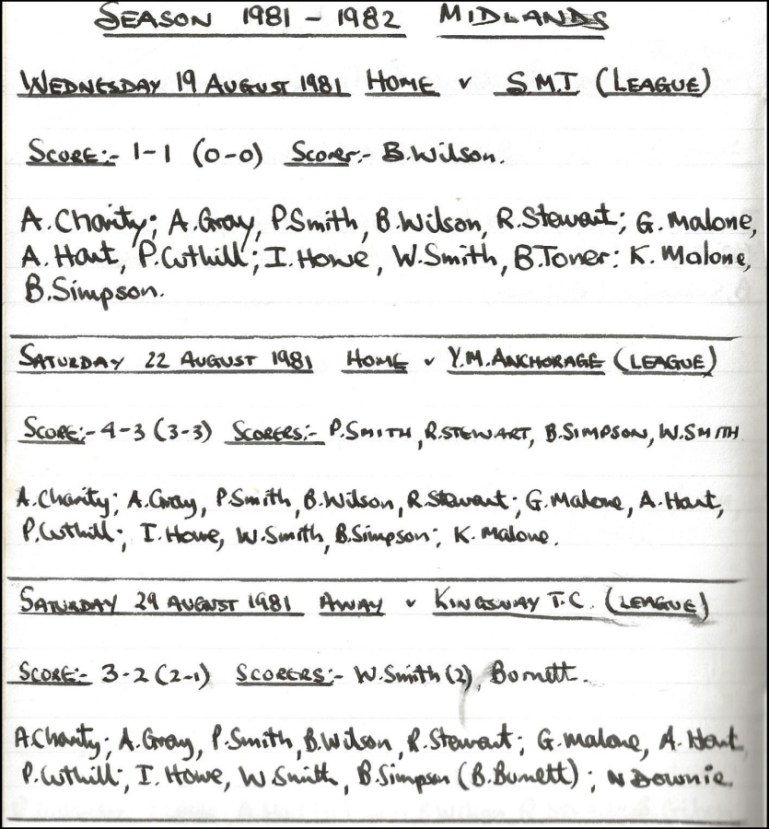 SEASON 1981 - 1982 MIDLANDS
WEDNESDAY 19 AUGUST 1981 HOME v S.M.T (LEAGUE)
SCORE:- 1-1 (0-0) Scorer:- B.Wilson.
A.Charity; A.Gray, P.Smith, B.Wilson, R.Stewart; G.Malone,
A.Hart, P.Cuthill; I.Howe, W.Smith, B.Toner: K.Malone,
B.Simpson.
SATURDAY 22 AUGUST 1981 HOME v Y.M.ANCHORAGE (LEAGUE)
SCORE:- 4-3 (3-3) SCORERS:- P.SMITH, R.STEWART, B.SIMPSON, W.SMITH
A.Charity; A.Gray, P.Smith, B.Wilson, R.Stewart; G.Malone, A.Hart,
P.Cuthill; I.Howe, W.Smith, B.Simpson; K.Malone.
SATURDAY 29 AUGUST 1981 AWAY v KINGSWAY T.C. (LEAGUE)
SCORE:- 3-2 (2-1) SCORERS:- W.Smith (2), Burnett.
A.Charity; A.Gray, P.Smith, B.Wilson, R.Stewart; G.Malone, A.Hart
P.Cuthill; I.Howe, W.Smith, B.Simpson (B.Burnett); N Downie.